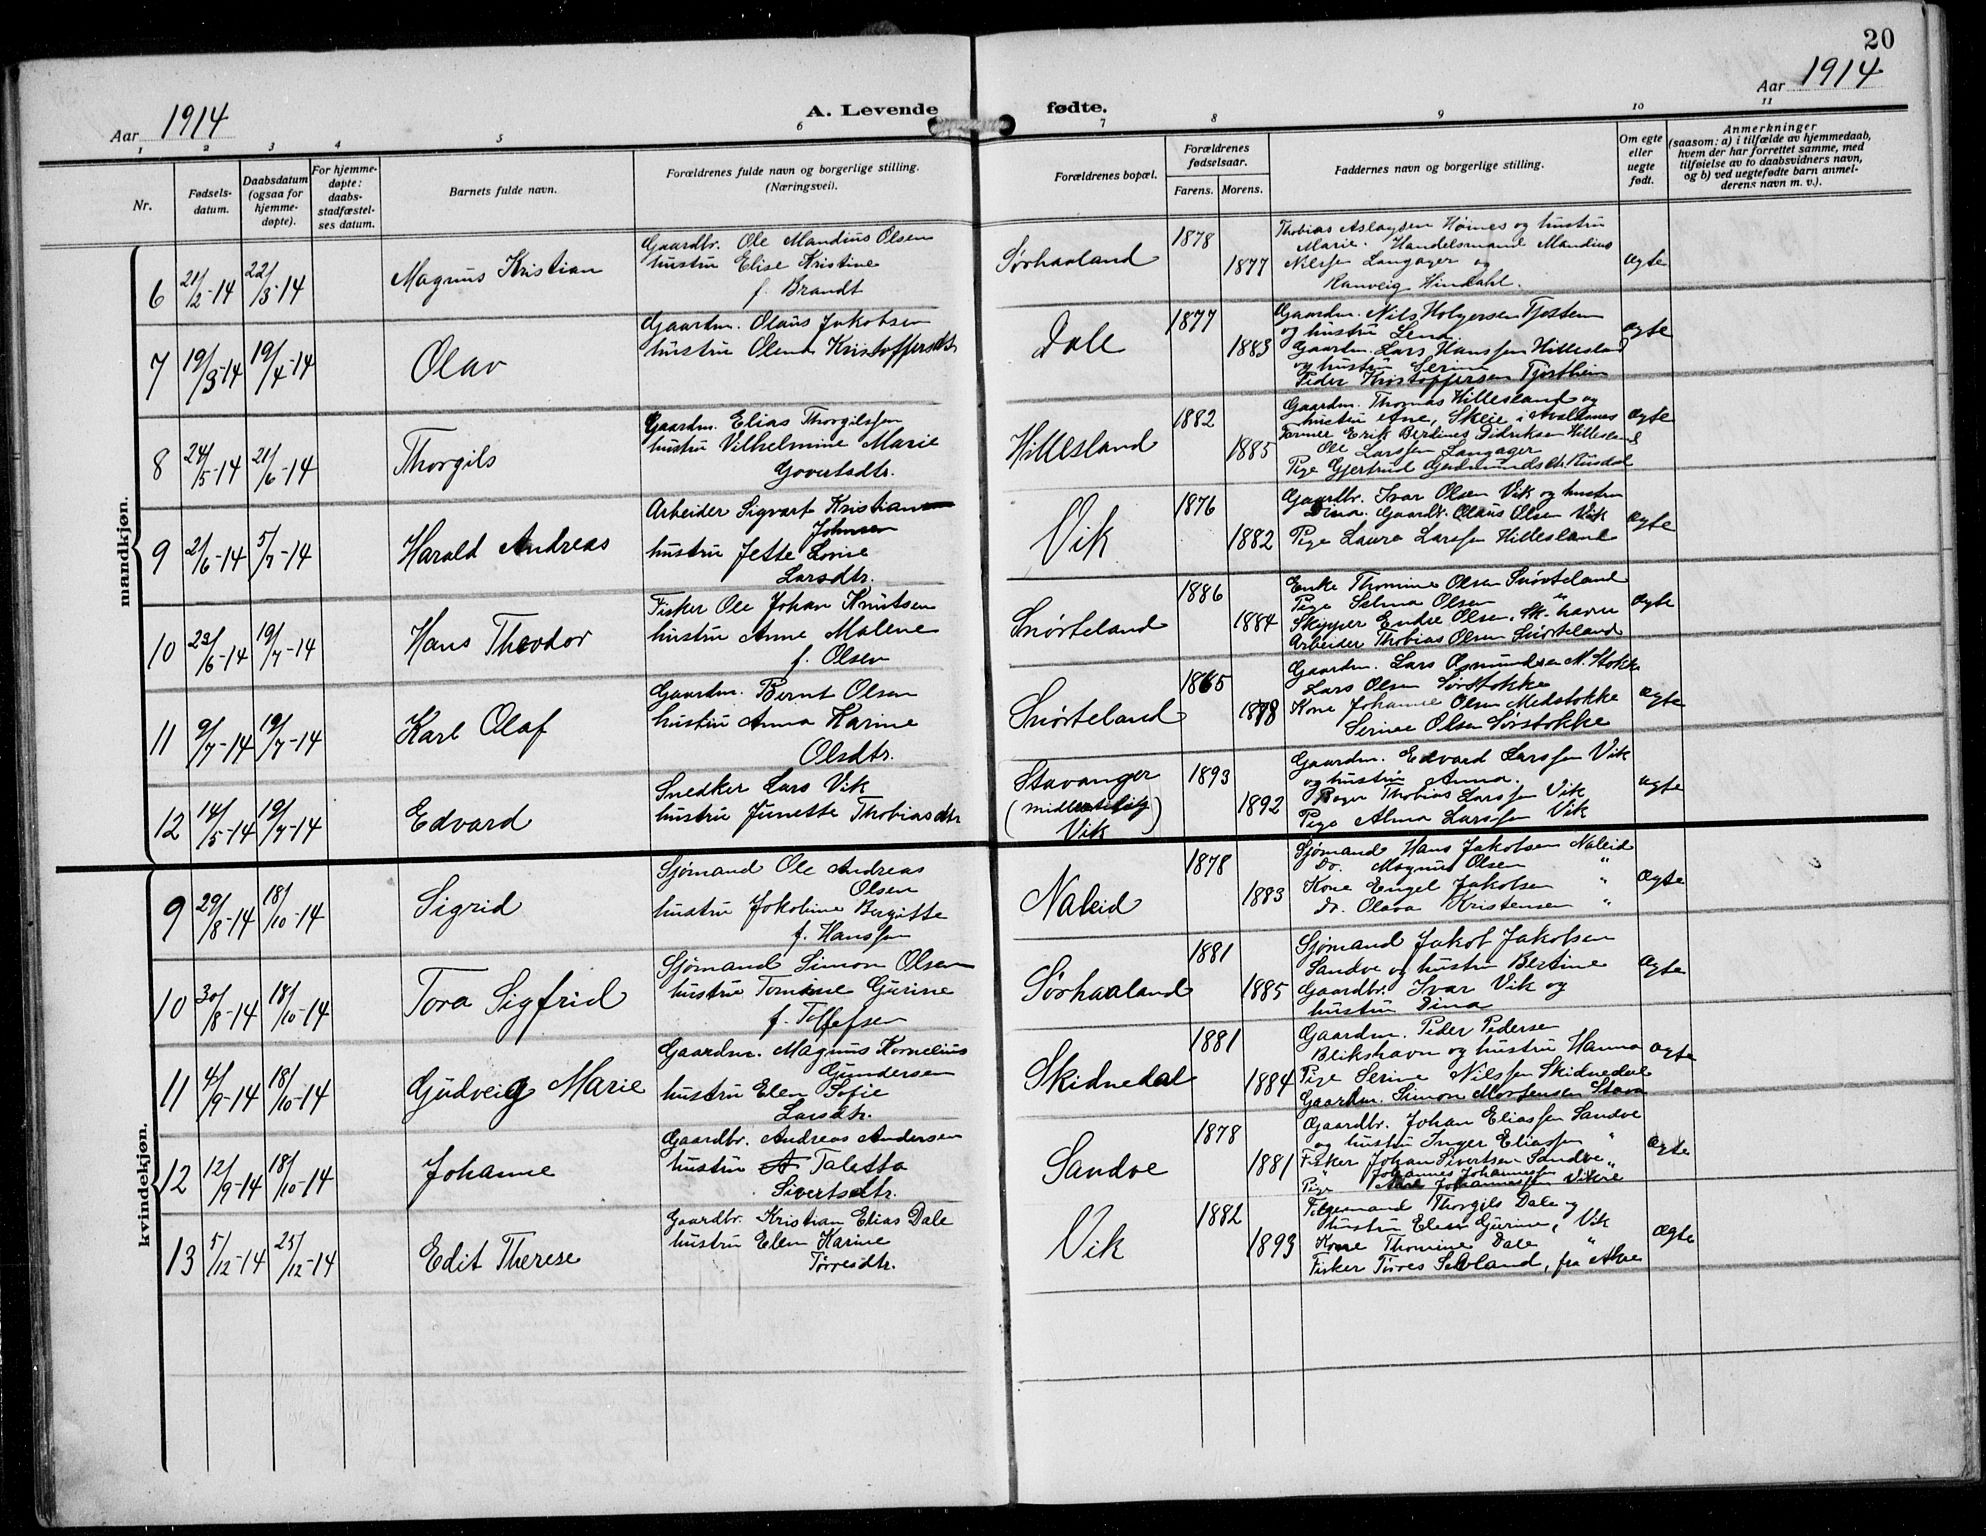 20
Aar 1914
A. Levende fødte.
Aar 1914
1 2 3 4 5 6 7 8 9 10 11
Nr.
Fødsels-
datum.
Daabsdatum
(ogsaa for
hjemme-
døpte).
For hjemme-
døpte:
daabs-
stadfæstel-
ses datum.
Barnets fulde navn.
Forældrenes fulde navn og borgerlige stilling.
(Næringsvei).
Forældrenes bopæl.
Forældrenes
fødselsaar.
Farens. Morens.
Faddernes navn og borgerlige stilling.
Om egte
eller
uegte
født.
Anmerkninger
(saasom: a) i tilfælde av hjemmedaab,
hvem der har forrettet samme, med
tilføielse av to daabsvidners navn,
og b) ved uegtefødte barn anmel-
derens navn m. v.).
mandkjøn.
6 21/2-14 22/3-14 Magnus Kristian
Gaardbr. Ole Mandius Olsen
hustru Elise Kristine
f. Brandt
Sørhaaland 1878 1877
Thobias Aslagsen Høines og hustru
Marie. Handelsmand Mandius
Nilssen Langager og
Ranveig Hindahl.
ægte
7 19/3-14 19/4-14 Olav
Gaardm. Olaus Jakobsen
hustru Olena Kristoffersdtr
Dale 1877 1883
Gaardm. Nils Holgersen Tjøstem
og hustru Lena
Gaardm. Lars Hanssen Hillesland
og hustru Serine
Peder Kristoffersen Tjøstheim
ægte
8 24/5-14 21/6-14 Thorgils
Gaardm. Elias Thorgilssen
hustru Vilhelmine Marie
Govertsdtr.
Hillesland 1882 1885
Gaardm. Thomas Hillesland og
hustru Ane, Skeie i Avaldsnes
Erik Berdines Didriksen Hillesland
Ole Larssen Langager
Pige Gjertrud Gudmundsdtr.
ægte
9 2/6-14 5/7-14 Harald Andreas
Arbeider Sigvart Kristian
Johnsen
hustru Jette Lovise
Larsdtr.
Vik 1876 1882
Gaardbr. Ivar Olsen Vik og hustru
Dina. Gaardbr. Olaus Olsen Vik
Pige Laura Larssen Hillesland
ægte
10 23/6-14 19/7-14 Hans Theodor
Fisker Ole Johan Knutsen
hustru Anne Malene
f. Olsen
Snørteland 1886 1884
Enke Thomine Olsen Snørteland
Pige Selma Olsen "
Skipper Endre Olsen, Sk. havn
Arbeider Thobias Olsen Snørteland
ægte
11 9/7-14 19/7-14 Karl Olaf
Gaardm. Bernt Olsen
hustru Anna Karine
Olsdtr.
Snørteland 1865 1878
Gaardm. Lars Osmundsen N. Stokke
Lars Olsen Sørstokke
Kone Johanne Olsen Medstokke
Serine Olsen Sørstokke
ægte
12 14/5-14 19/7-14 Edvard
Snedker Lars Vik
hustru Junette Thobiasdtr
Stavanger
(midlertidig
Vik) 1893 1892
Gaardm. Edvard Larssen Vik
og hustru Anna.
Thobias Larssen Vik
Pige Alma Larssen Vik
ægte
kvindekjøn.
9 29/8-14 18/10-14 Sigrid
Sjømand Ole Andreas
Olsen
hustru Jakobine Bergitte
f. Hanssen
Naleid 1878 1883
Sjømand Hans Jakobsen Naleid
Do. Magnus Olsen "
Kone Engel Jakobsen "
do. Olava Kristensen "
ægte
10 30/8-14 18/10-14 Tora Sigfrid
Sjømand Simon Olsen
hustru Tomine Gurine
f. Tollefsen
Sørhaaland 1881 1885
Sjømand Jakob Jakobsen
Sandve og hustru Bertine
Gaardbr. Ivar Vik og
hustru Dina
ægte
11 4/9-14 18/10-14 Gudveig Marie
Gaardm. Magnus Kornelius
Gundersen
hustru Elen Sofie
Larsdtr.
Skidnedal 1881 1884
Gaardm. Peder Pedersen
Blikshavn og hustru Hanna
Pige Serine Nilssen Skidnedal
Gaardm. Simon Mortensen Stava
ægte
12 12/9-14 18/10-14 Johanne
Gaardbr. Andreas Andersen
hustru Taletta
Sivertsdtr.
Sandve 1878 1881
Gaardbr. Johan Eliassen Sandve
og hustru Inger Eliassen "
Fisker Johan Sivertsen Sandve
" Johannes Johannessen "
Pige Johannessen Vikre
ægte
13 5/12-14 25/12-14 Edit Therese
Gaardbr. Kristian Elias Dale
hustru Elen Karine
Tørresdtr.
Vik 1882 1893
Thorgils Dale og
hustru Elen Gurine, Vik
Kone Thomine Dale "
Fisker Tørres Sævland, fra Akre
ægte